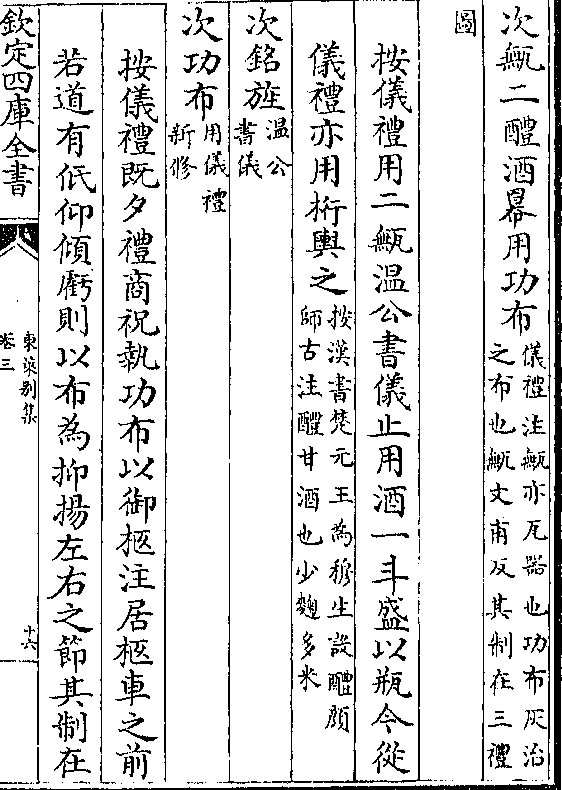 次甒二醴酒幂用功布儀禮注甒亦瓦器也功布灰治
之布也甒丈甫反其制在三禮
圖
按儀禮用二甒温公書儀止用酒一斗盛以瓶今從
儀禮亦用桁轝之按漢書楚元王為穆生設醴顔
師古注醴甘酒也少麴多米
次銘旌温公
書儀
次功布用儀禮
新修
按儀禮既夕禮商祝執功布以御柩注居柩車之前
若道有低仰傾虧則以布為抑揚左右之節其制在
欽定四庫全書
東萊别集
卷三
十六